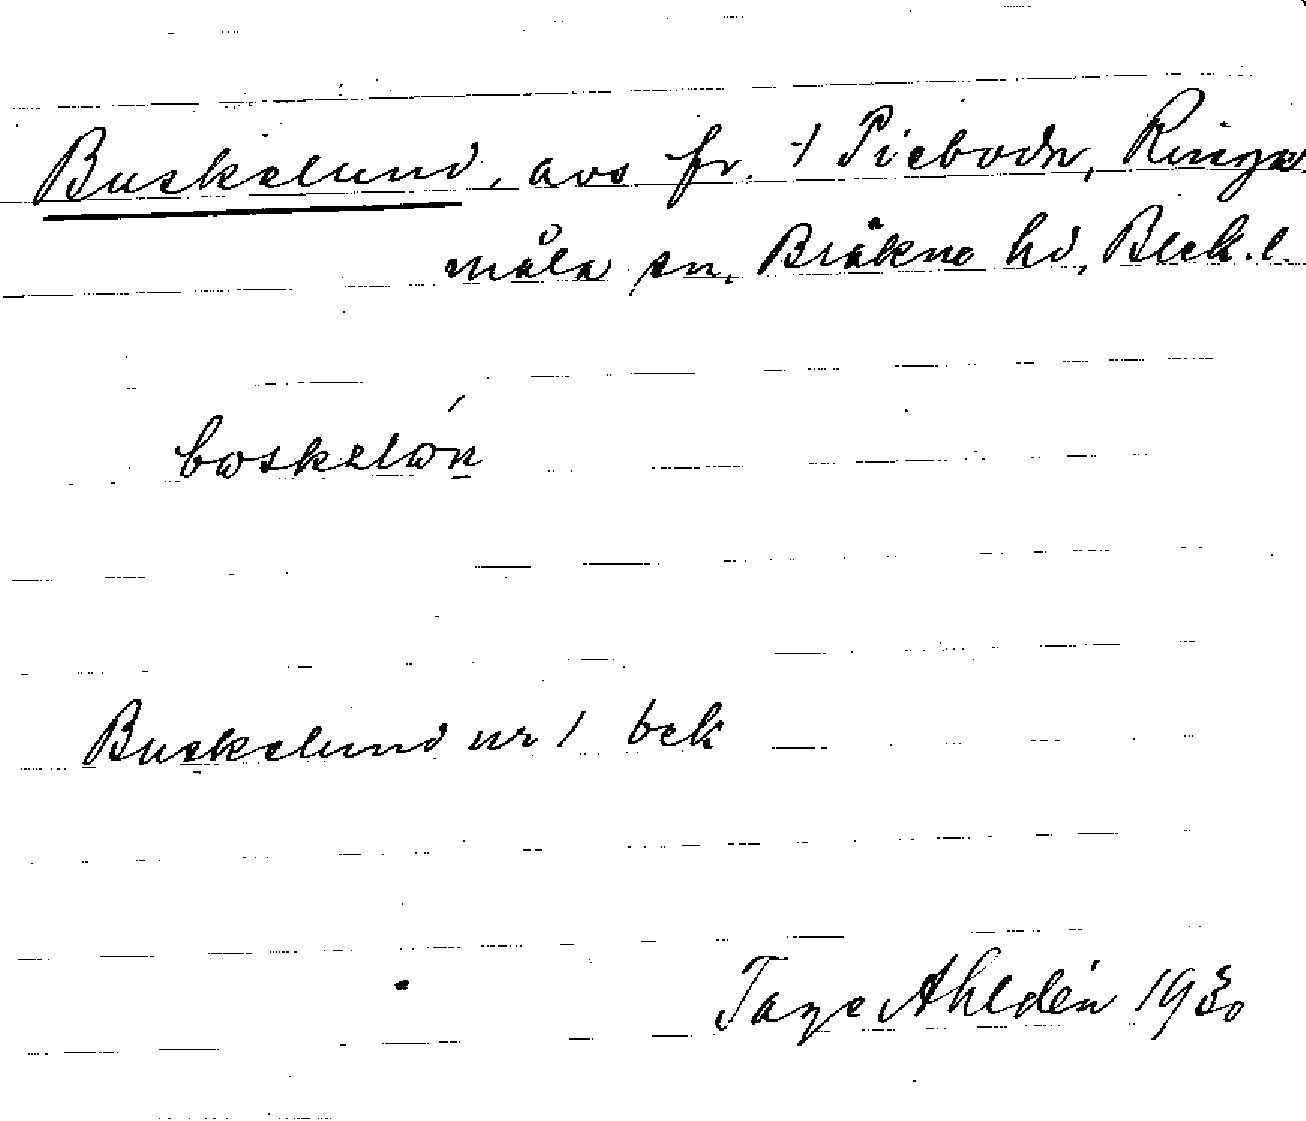 Buskelund, avs fr. 1 Pieboda, Ringa
måla sn, Bräkne hd, Blek. l.
boskəlón
Buskelund nr 1 bek
Tage Ahldén 1930